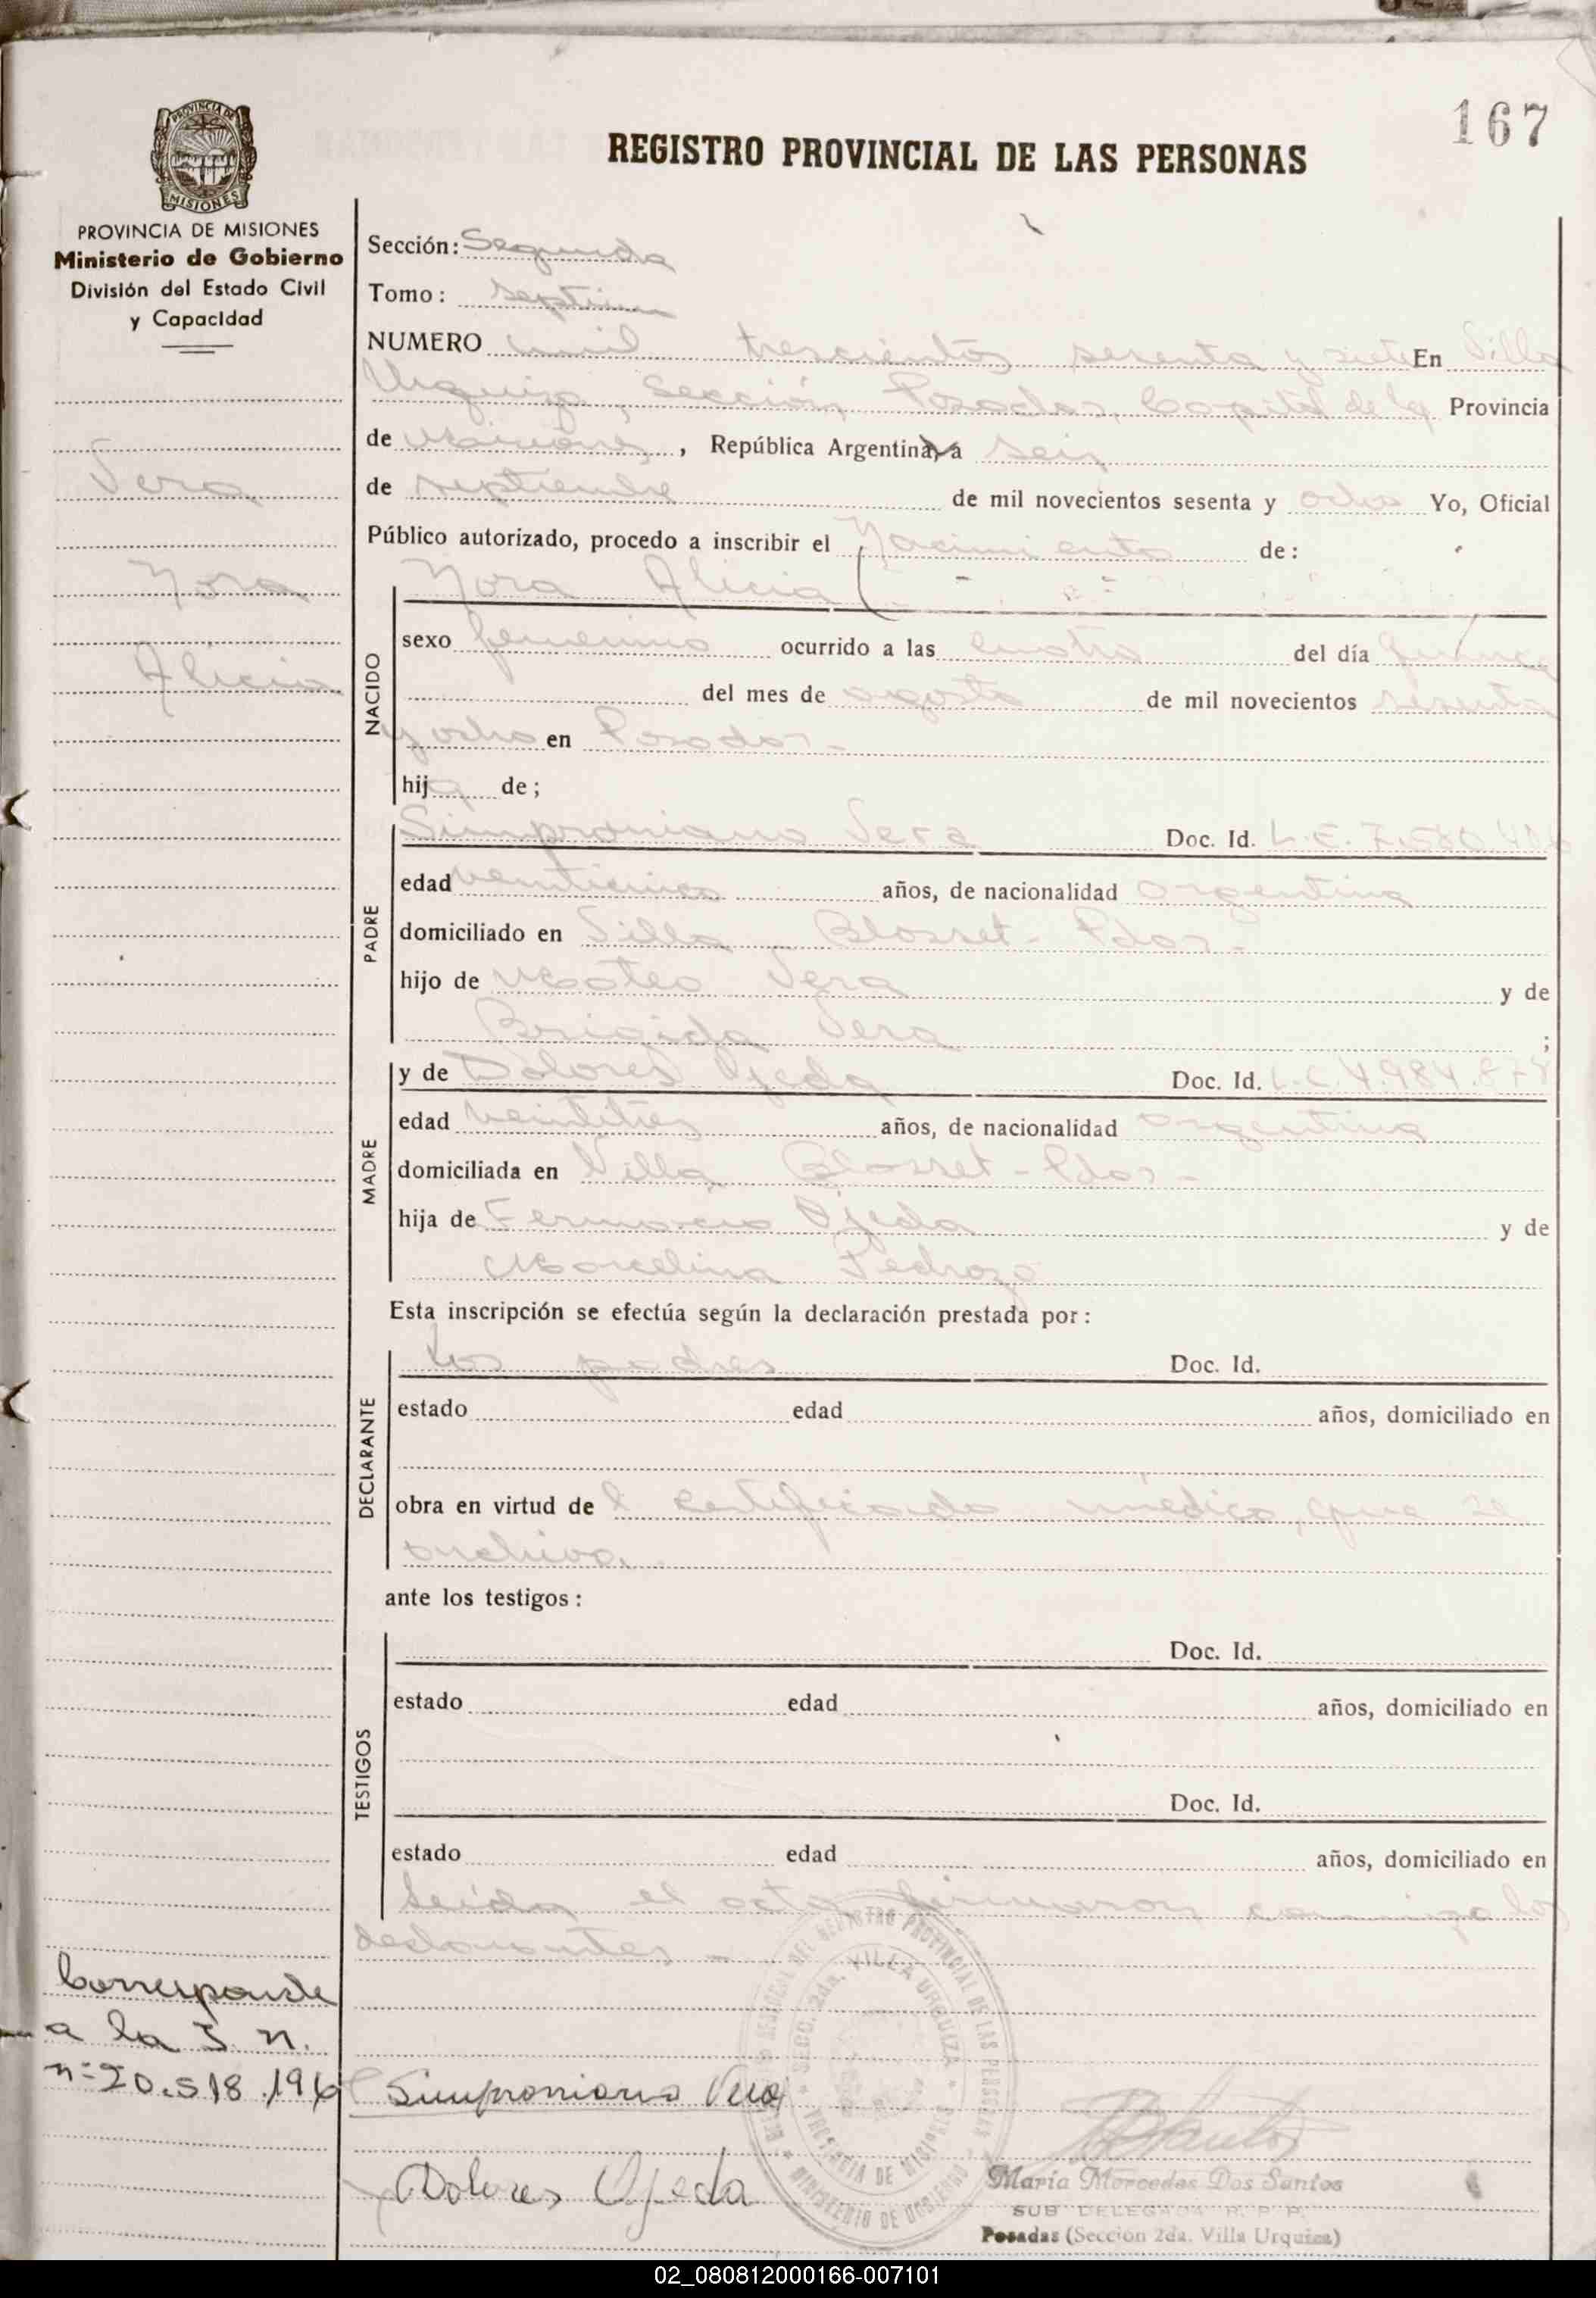 167
REGISTRO PROVINCIAL DE LAS PERSONAS
PROVINCIA DE
MISIONES
PROVINCIA DE MISIONES
Ministerio de Gobierno
División del Estado Civil
y Capacidad
Vera
Nora
Alicia
Sección: Segunda
Tomo: septimo
NUMERO mil trescientos sesenta y siete En Villa
Urquiza, Sección Posadas, Capital de la Provincia
de Misiones, República Argentina, a seis
de septiembre de mil novecientos sesenta y ocho Yo, Oficial
Público autorizado, procedo a inscribir el Nacimiento de:
NACIDO
Nora Alicia
sexo femenino ocurrido a las cuatro del día quince
del mes de agosto de mil novecientos sesenta
y ocho en Posadas -
hija de;
PADRE
Simproniano Vera Doc. Id. L.E. 7.580.
edad veinticinco años, de nacionalidad argentina
domiciliado en Villa Blosset - Pdas -
hijo de Mateo Vera y de
Brigida Vera ;
MADRE
y de Dolores Ojeda Doc. Id. L.C. 4.984.
edad veintitres años, de nacionalidad argentina
domiciliada en Villa Blosset - Pdas -
hija de Ojeda y de
Marcelina Pedrozo
Esta inscripción se efectúa según la declaración prestada por:
DECLARANTE
los padres Doc. Id.
estado edad años, domiciliado en
obra en virtud de l certificado médico, que se
archiva.
ante los testigos:
TESTIGOS
Doc. Id.
estado edad años, domiciliado en
Doc. Id.
estado edad años, domiciliado en
Leída el acta firmaron conmigo los
declarantes -
Corresponde
a la I. n.
nº 20.518.196
Simproniano Vera
Dolores Ojeda
DEL REGISTRO PROVINCIAL DE LAS PERSONAS
SECC. 2da. VILLA URQUIZA
PROVINCIA DE MISIONES
MINISTERIO DE GOBIERNO
María Mercedes Dos Santos
SUB DELEGADA R. P. P.
Posadas (Sección 2da. Villa Urquiza)
02_080812000166-007101